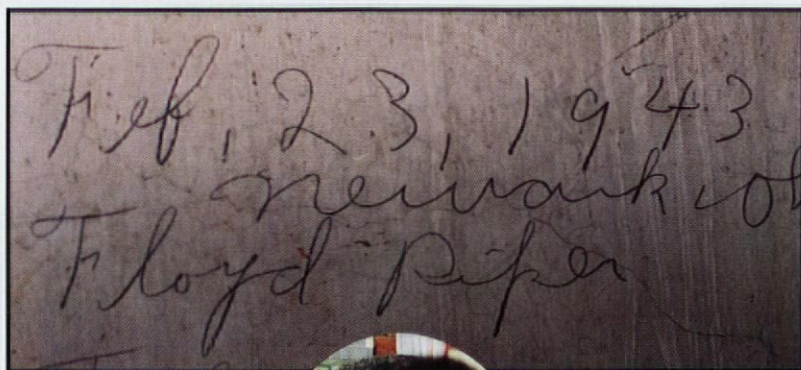 Feb, 23, 1943
Newark, Oh
Floyd Piper